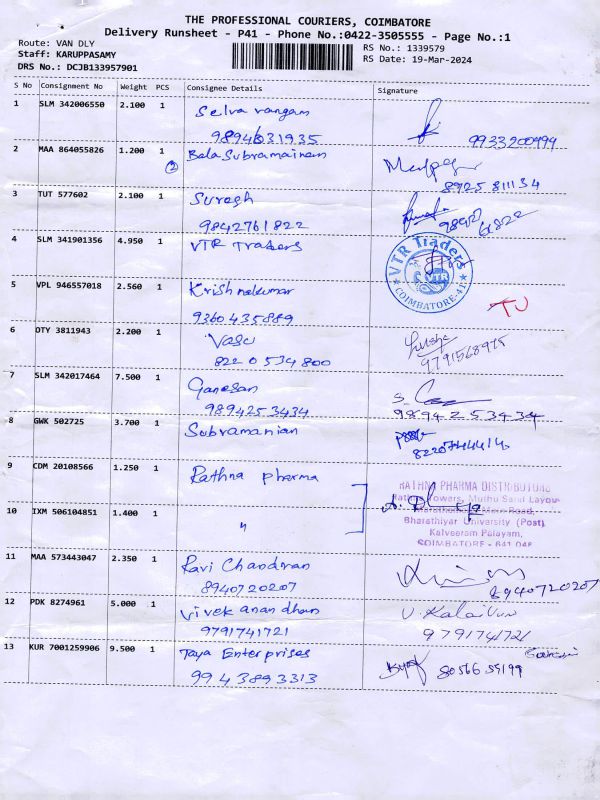 THE PROFESSIONAL COURIERS, COIMBATORE
Delivery Runsheet - P41 - Phone No.:0422-3505555 - Page No.:1
Route: VAN DLY
RS No.: 1339579
Staff: KARUPPASAMY
RS Date: 19-Mar-2024
DRS No.: DCJB133957901
S No Consignment No Weight PCS Consignee Details Signature
1 SLM 342006550 2.100 1 Selva rangam
9894631935 9933200999
2 MAA 864055826 1.200 1 Bala Subramainam
2 8925811134
3 TUT 577602 2.100 1 Suresh
9842761822
4 SLM 341901356 4.950 1 VTR Traders
VTR Traders
VTR
COIMBATORE-41
5 VPL 946557018 2.560 1 Krishnakumar
9360435889
6 DTY 3811943 2.200 1 Vasu
8220534800 9791568975
7 SLM 342017464 7.500 1 Ganesan
9894253434 98942 53434
8 GWK 502725 3.700 1 Subramanian
8220744414
9 CDM 20108566 1.250 1 Rathna pharma
RATHNA PHARMA DISTRIBUTORS
Rathna Towers, Muthu Sand Layou
Main Road,
10 IXM 506104851 1.400 1 "
Bharathiyar University (Post)
Kalveeram Palayam,
COIMBATORE - 641 046
11 MAA 573443047 2.350 1 Ravi Chandran
8940720207 8940720207
12 PDK 8274961 5.000 1 Vivek anandhan
V. Kalaivani
9791741721 9791741721
13 KUR 7001259906 9.500 1 Jaya Enterprises
9943893313 8056659199